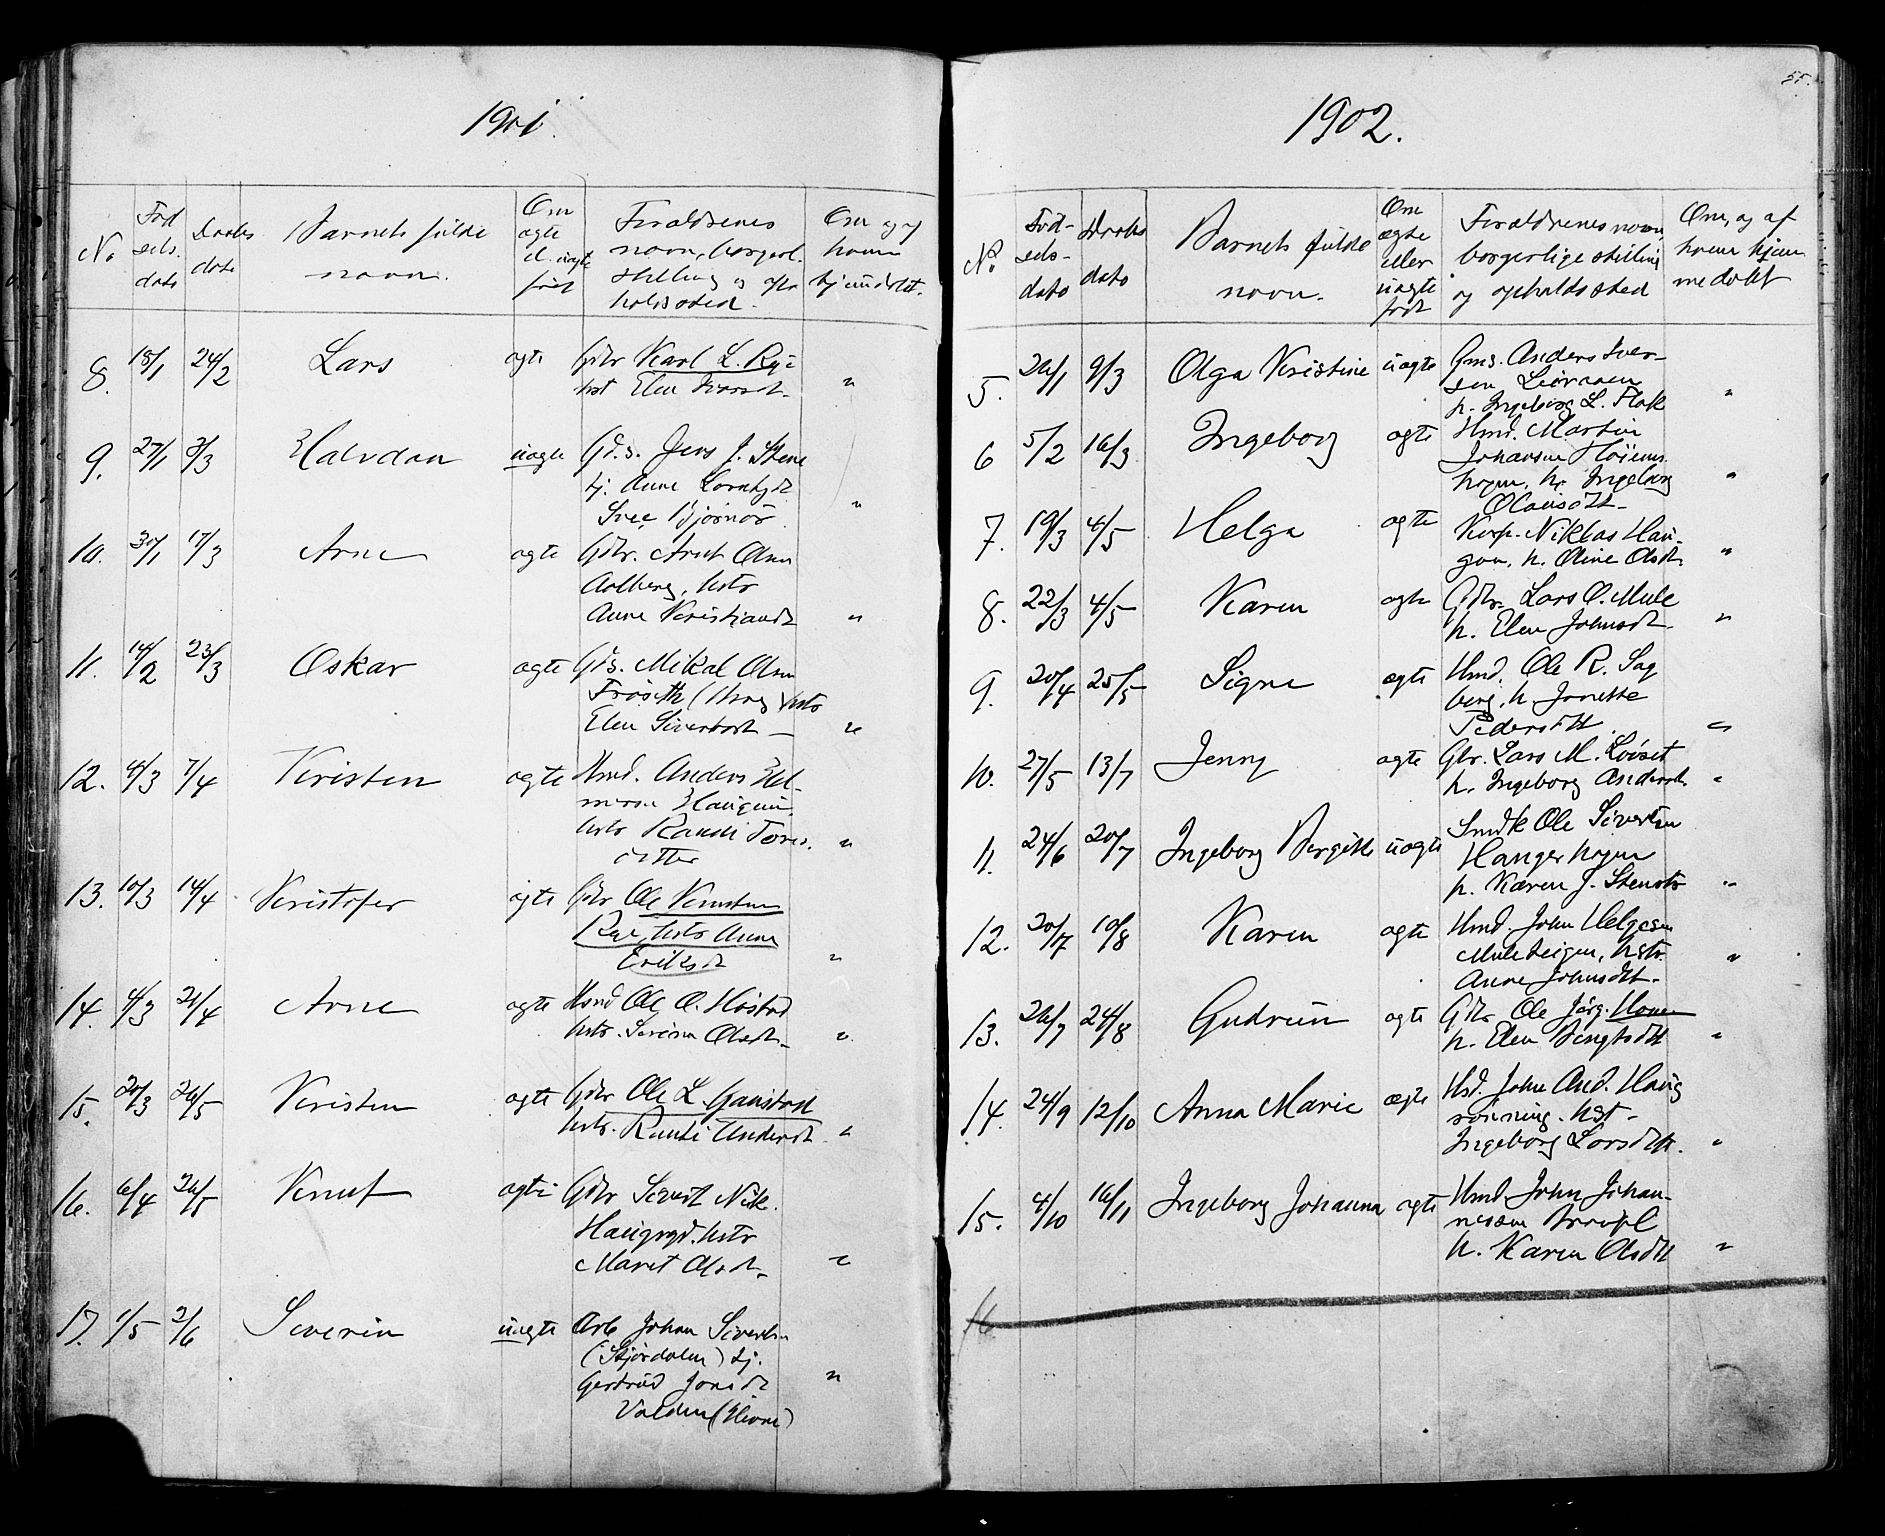 55.
1901.
No
Fød
sels.
dato
Daabs
dato
Barnets fulde
navn.
Om
ægte
el. uægte
født
Forældrenes
navn, borgerl.
stilling og opho
holdssted.
Om og af
hvem
hjemdøbt.
8. 18/1 24/2 Lars ægte Gbr Karl L. Rye
hst Elen
"
9. 27/1 3/3 Halvdan uægte Gds. Jens J. Stene
tj. Anne
"
10. 30/1 17/3 Arne ægte Gbr. Arnt Olsen
Aalberg, hstr
Anne Kristiansdt "
11. 14/2 23/3 Oskar ægte Gds. Mikal Olsen
Frøseth hstr
Elen Sivertsdt "
12. 4/3 7/4 Kristen ægte Hmd. Anders
Haugen,
hstr Randi Tores
datter "
13. 10/3 14/4 Kristofer ægte Gbr Ole Knutsen
Rye, hstr Anne
Eriksdt "
14. 4/3 21/4 Arne ægte Hsmd Ole O. Høstad
hstr. Olsdt. "
15. 20/3 26/5 Kristen ægte Gbr Ole L. Gaustad
hstr. Randi Andersdt. "
16. 6/4 26/5 Knut ægte Gbr Sivert Nik.
hstr
Marit Olsdt. "
17. 1/5 2/6 Severin uægte Arb Johan Sivertsen
(Stjørdalen) tj.
Gertrud Jonsdt "
Valden (Hevne)
1902.
No
Fød-
sels-
dato
Daabs
dato
Barnets fulde
navn.
Om
ægte
eller
uægte
født
Forældrenes navn
borgerlige stilling
og opholdssted
Om, og af
hvem hjem
medøbt
5. 26/1 9/3 Olga Kristine uægte Gms. Anders Iver-
sen
p. Ingeborg L. Flak "
6 5/2 16/3 Ingeborg ægte Hmd. Martin
Johansen
hr. Ingeborg "
Olausdt.
7. 19/3 4/5 Helga ægte Korp. Niklas Hau-
gan, h. Oline Olsdt. "
8. 22/3 4/5 Karen ægte Gbr. Lars O. Mule
h. Elen Johnsdt. "
9. 20/4 25/5 Signe ægte Hmd. Ole R. Sag
berg, h. Jonette
Pedersdtt. "
10. 27/5 13/7 Jenny ægte Gbr. Lars M. Løiset
h. Ingeborg Andersdt. "
11. 24/6 20/7 Ingeborg Bergitte uægte Smdk Ole Sivertsen
Haugerhagen
p. Karen J. "
12. 20/7 10/8 Karen ægte Hmd. John Helgesen
Muleteigen, hstr. "
Anne Johnsdtt.
13. 26/7 24/8 Gudrun ægte Gbr Ole Jørg. Honen
h. Elen Bengtsdtt "
14. 24/9 12/10 Anna Marie ægte Hsd. John And. Haug
rønning. hst-
Ingeborg Larsdtt. "
15. 4/10 16/11 Ingeborg Johanna ægte Hmd. John Johan-
nesen
h. Karen Olsdtt "
16